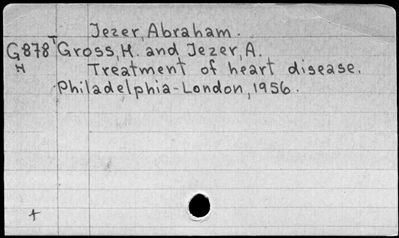 Jezer, Abraham.
G878T Gross, H. and Jezer, A.
H Treatment of heart disease.
Philadelphia-London, 1956.